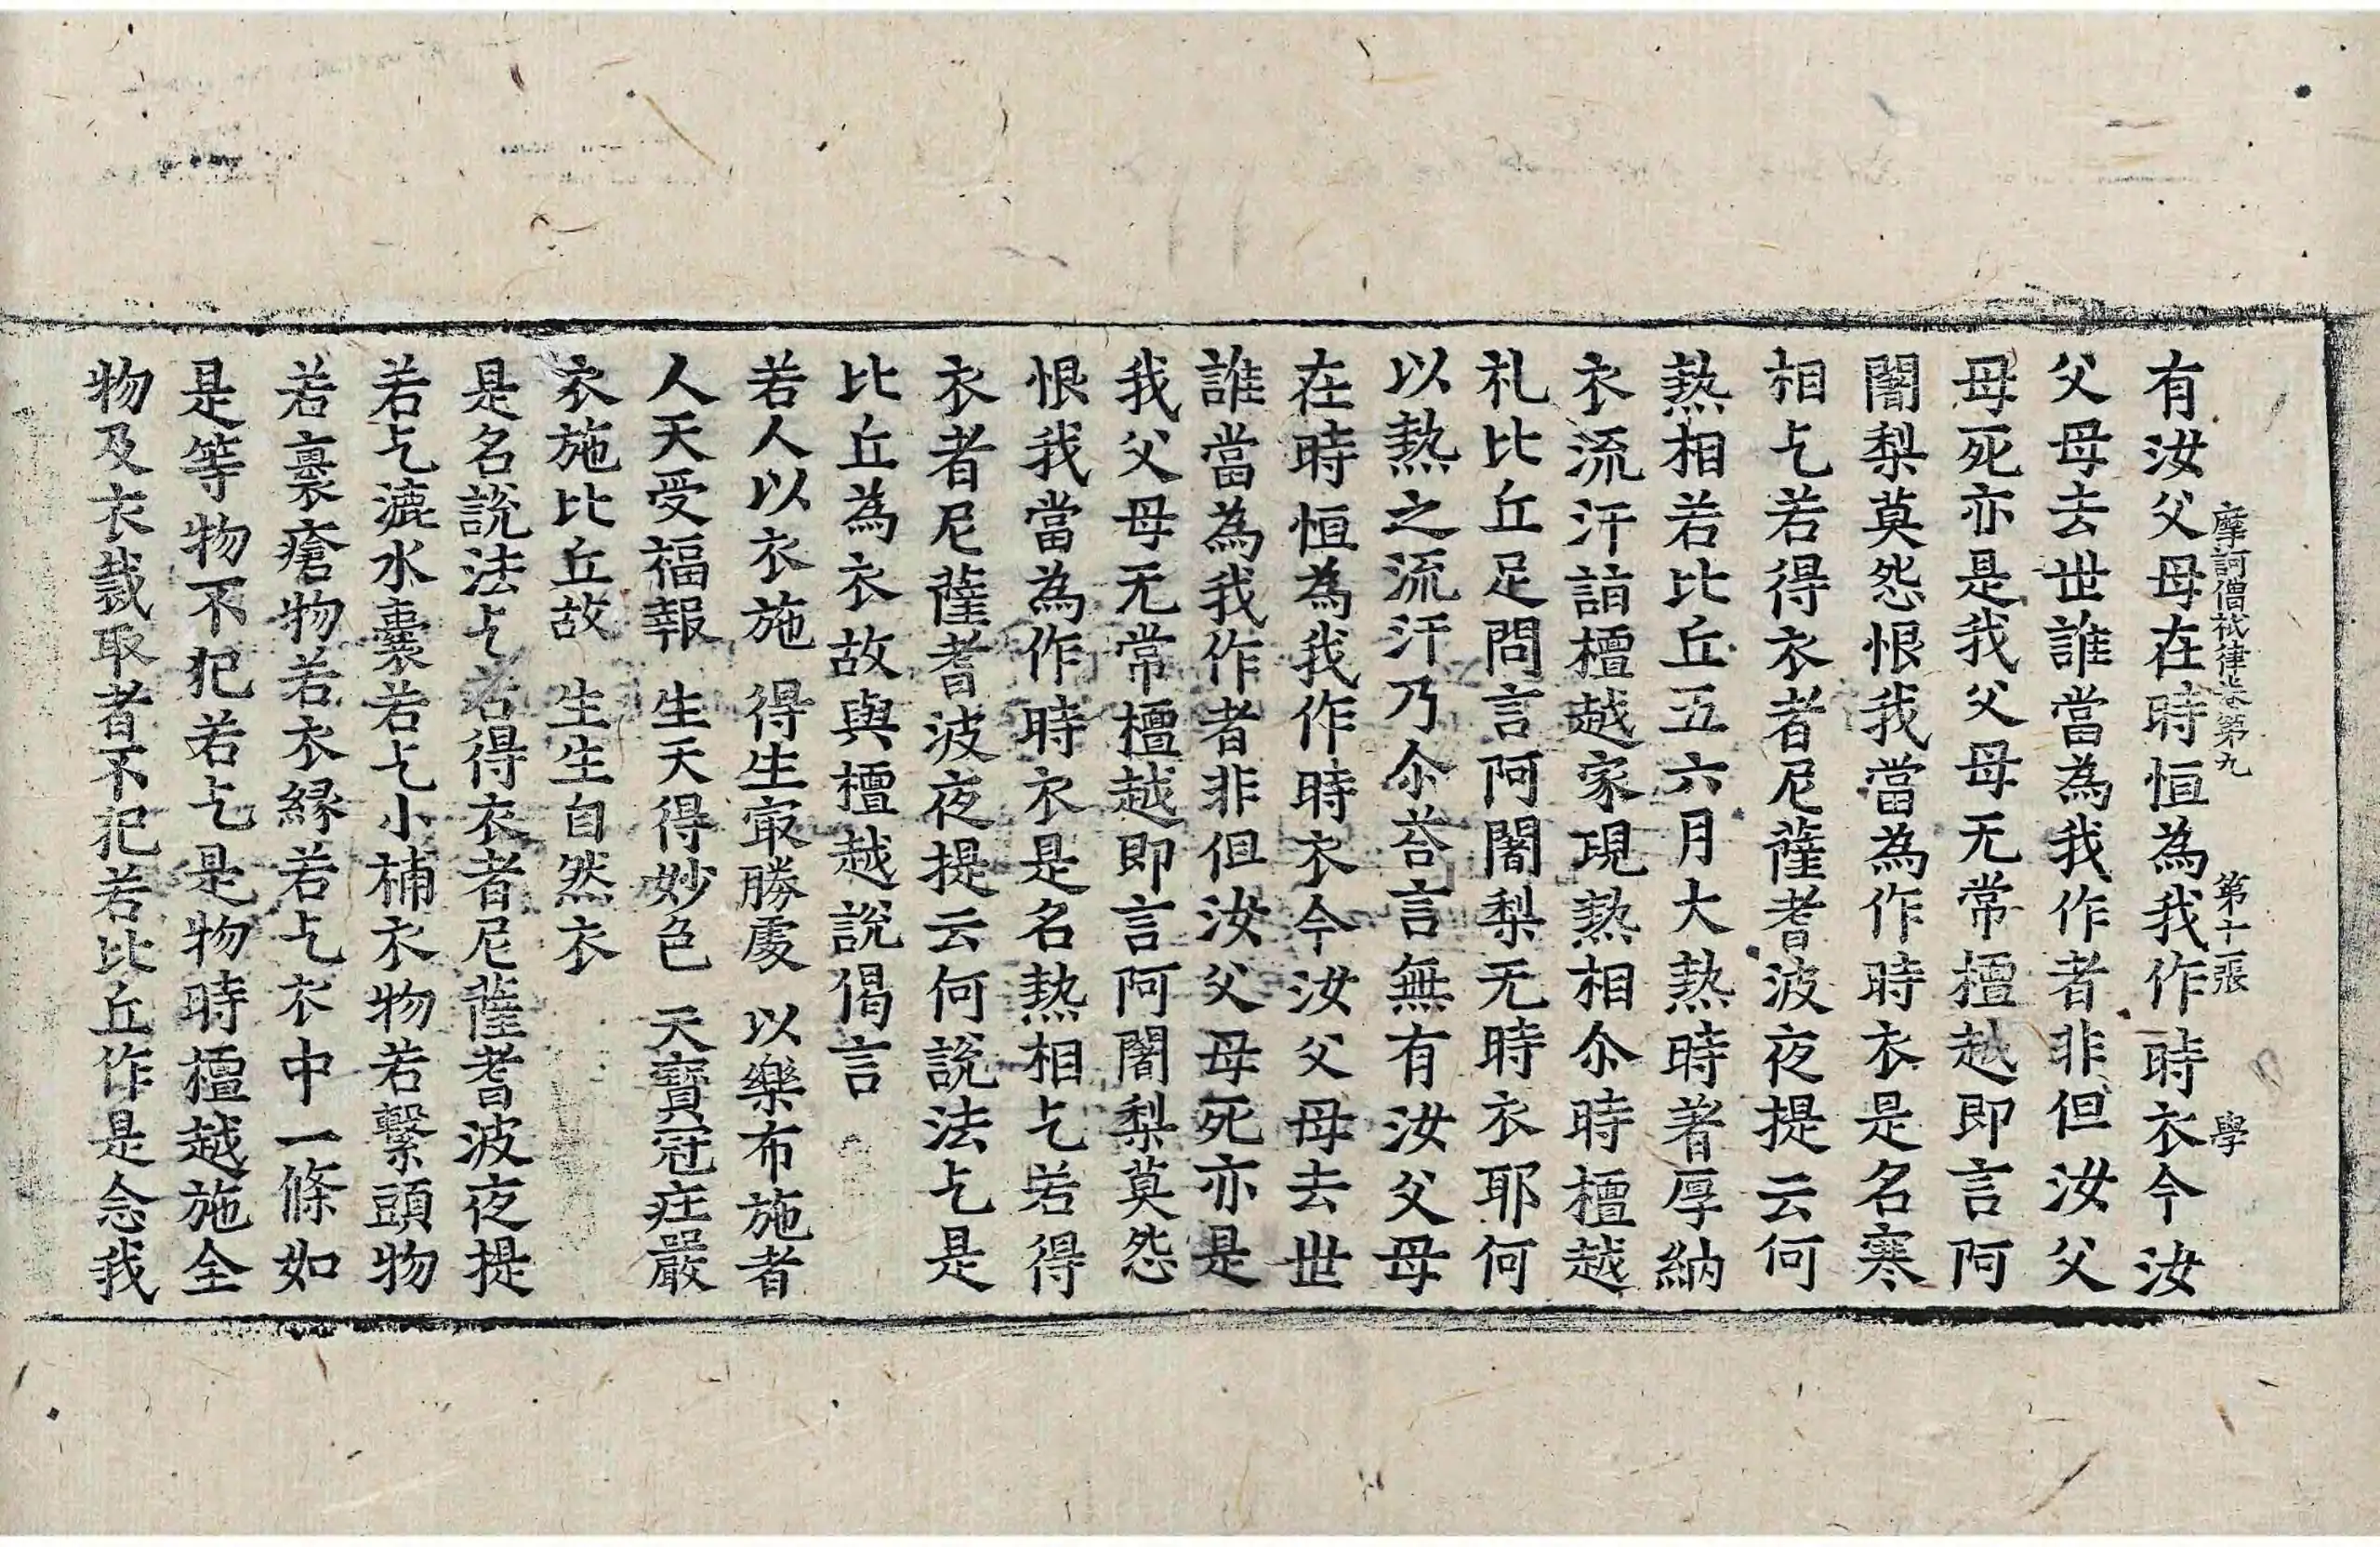 摩訶僧祇律卷第九　第十一張　學
有汝父母在時恒為我作時衣今汝
父母去世誰當為我作者非但汝父
母死亦是我父母无常檀越即言阿
闍梨莫怨恨我當為作時衣是名寒
相乞若得衣者尼薩耆波夜提云何
熱相若比丘五六月大熱時著厚納
衣流汗詣檀越家現熱相尒時檀越
礼比丘足問言阿闍梨无時衣耶何
以熱之流汗乃尒荅言無有汝父母
在時恒為我作時衣今汝父母去世
誰當為我作者非但汝父母死亦是
我父母无常檀越即言阿闍梨莫怨
恨我當為作時衣是名熱相乞若得
衣者尼薩耆波夜提云何說法乞是
比丘為衣故與檀越說偈言
若人以衣施　得生㝡勝處　以樂布施者
人天受福報　生天得妙色　天寶冠㽵嚴
衣施比丘故　生生自然衣
是名說法乞若得衣者尼薩耆波夜提
若乞漉水囊若乞小補衣物若繫頭物
若裹瘡物若衣緣若乞衣中一條如
是等物不犯若乞是物時檀越施全
物及衣裁取者不犯若比丘作是念我